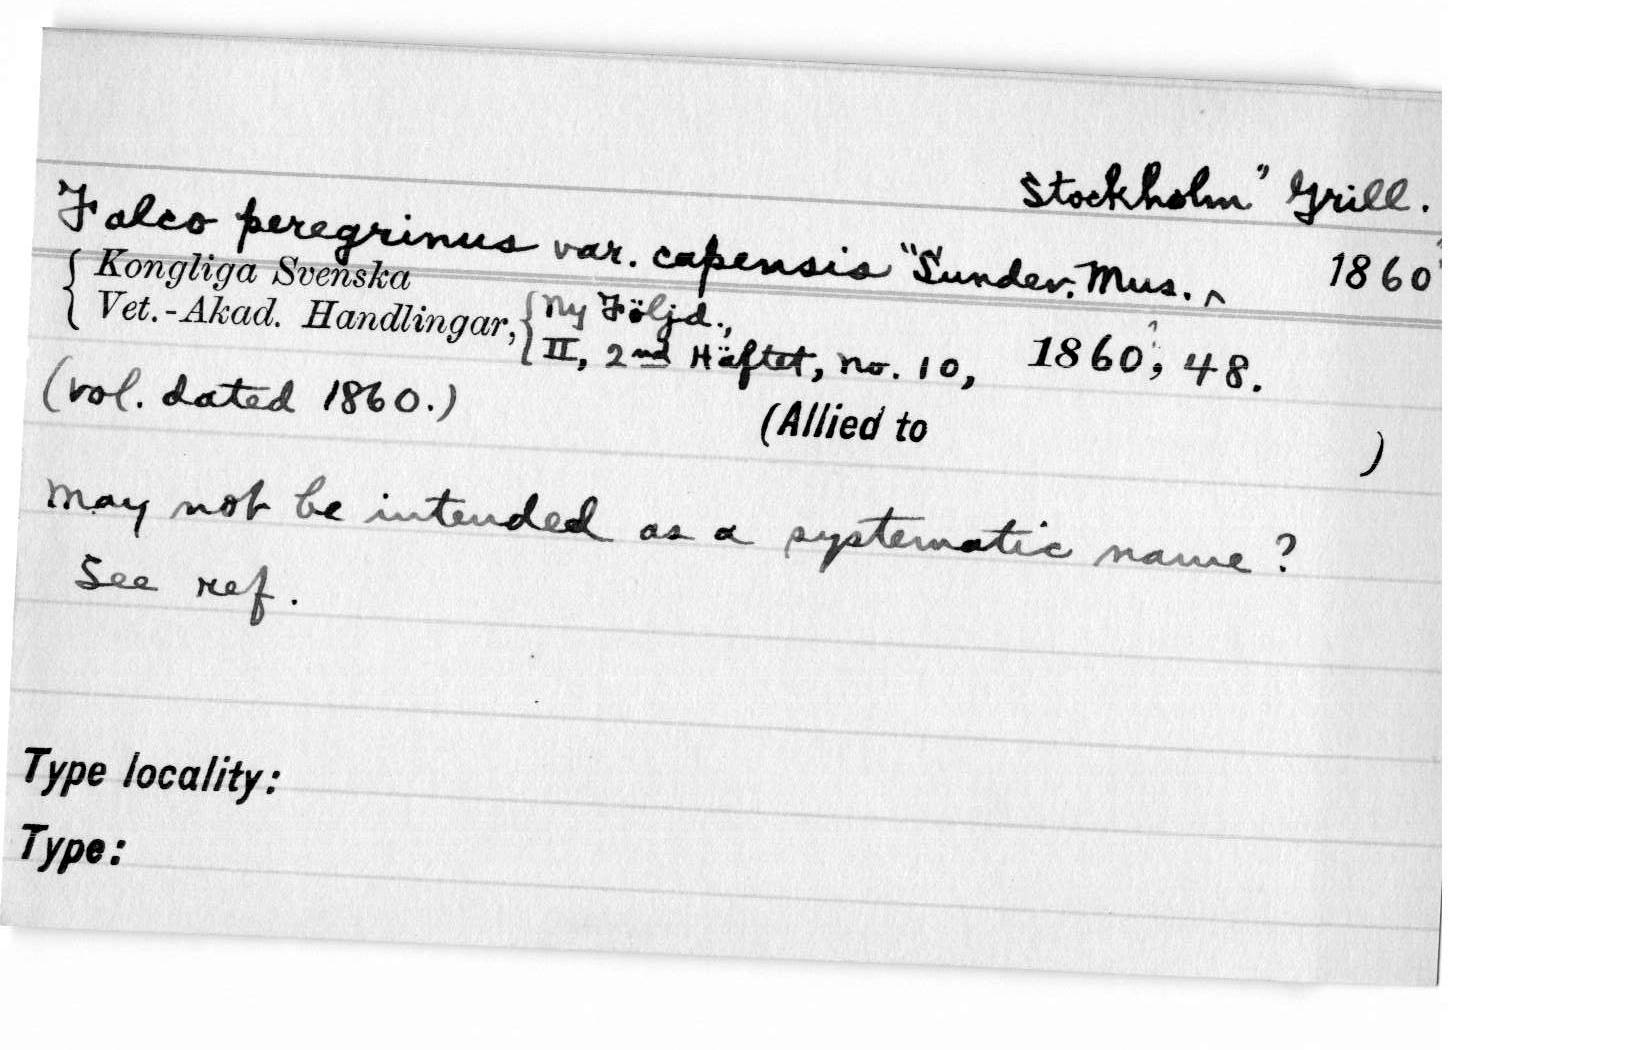 Stockholm" Grill.
Falco peregrinus var. capensis "Sundev. Mus. ^ 1860?
{ Kongliga Svenska
Vet.-Akad. Handlingar, { Ny Följd.,
II, 2nd Häftet, no. 10, 1860?, 48.
(vol. dated 1860.)
(Allied to )
May not be intended as a systematic name?
See ref.
Type locality:
Type: